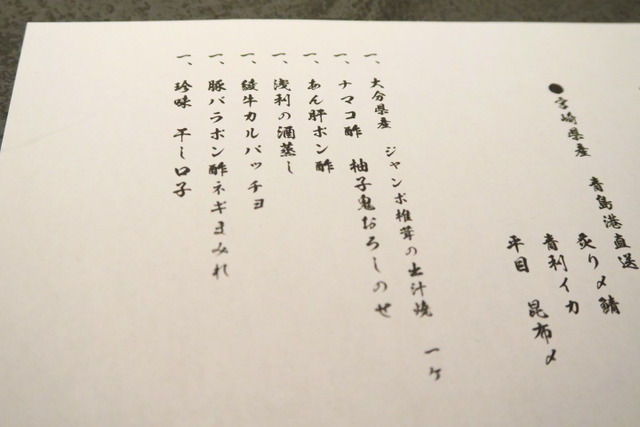 ●宮崎県産 青島港直送
炙り〆鯖
青利イカ
平目 昆布〆
一、大分県産 ジャンボ椎茸の出汁焼 一ヶ
一、ナマコ酢 柚子鬼おろしのせ
一、あん肝ポン酢
一、浅利の酒蒸し
一、綾牛カルパッチョ
一、豚バラポン酢ネギまみれ
一、珍味 干し口子